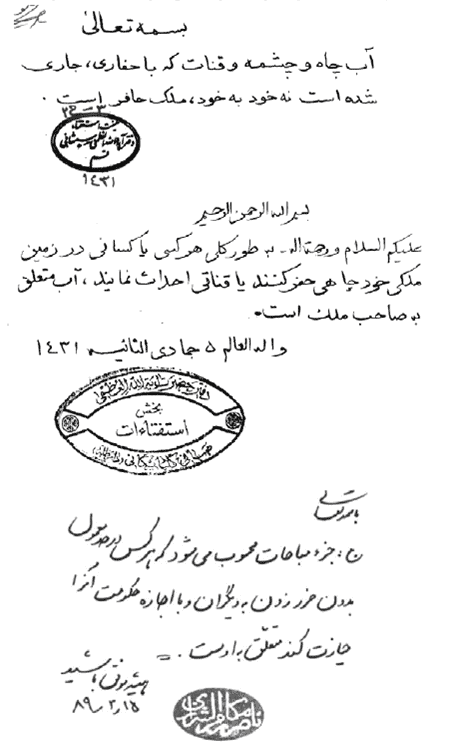 بسمه تعالیٰ
آب چاه و چشمه و قنات که با حفاری، جاری
شده است نه خود به خود، ملک حافر است.
۱۴۳۱
بسم الله الرحمن الرحیم
علیکم السلام و رحمة الله - به طور کلی هر کسی یا کسانی در زمین
ملکی خود چاهی حفر کنند یا قناتی احداث نمایند، آب متعلق
به صاحب ملک است.
والله العالم ۵ جمادی الثانیه ۱۴۳۱
بخش
استفتاءات
باسمه تعالی
ج: جزء مباحات محسوب می شود که هر کس در حد معمول
بدون ضرر زدن به دیگران و با اجازه حکومت آنرا
حیازت کند متعلّق به اوست.
همیشه موفق باشید
۸۹/۲/۱۵
ناصر مکارم الشیرازی